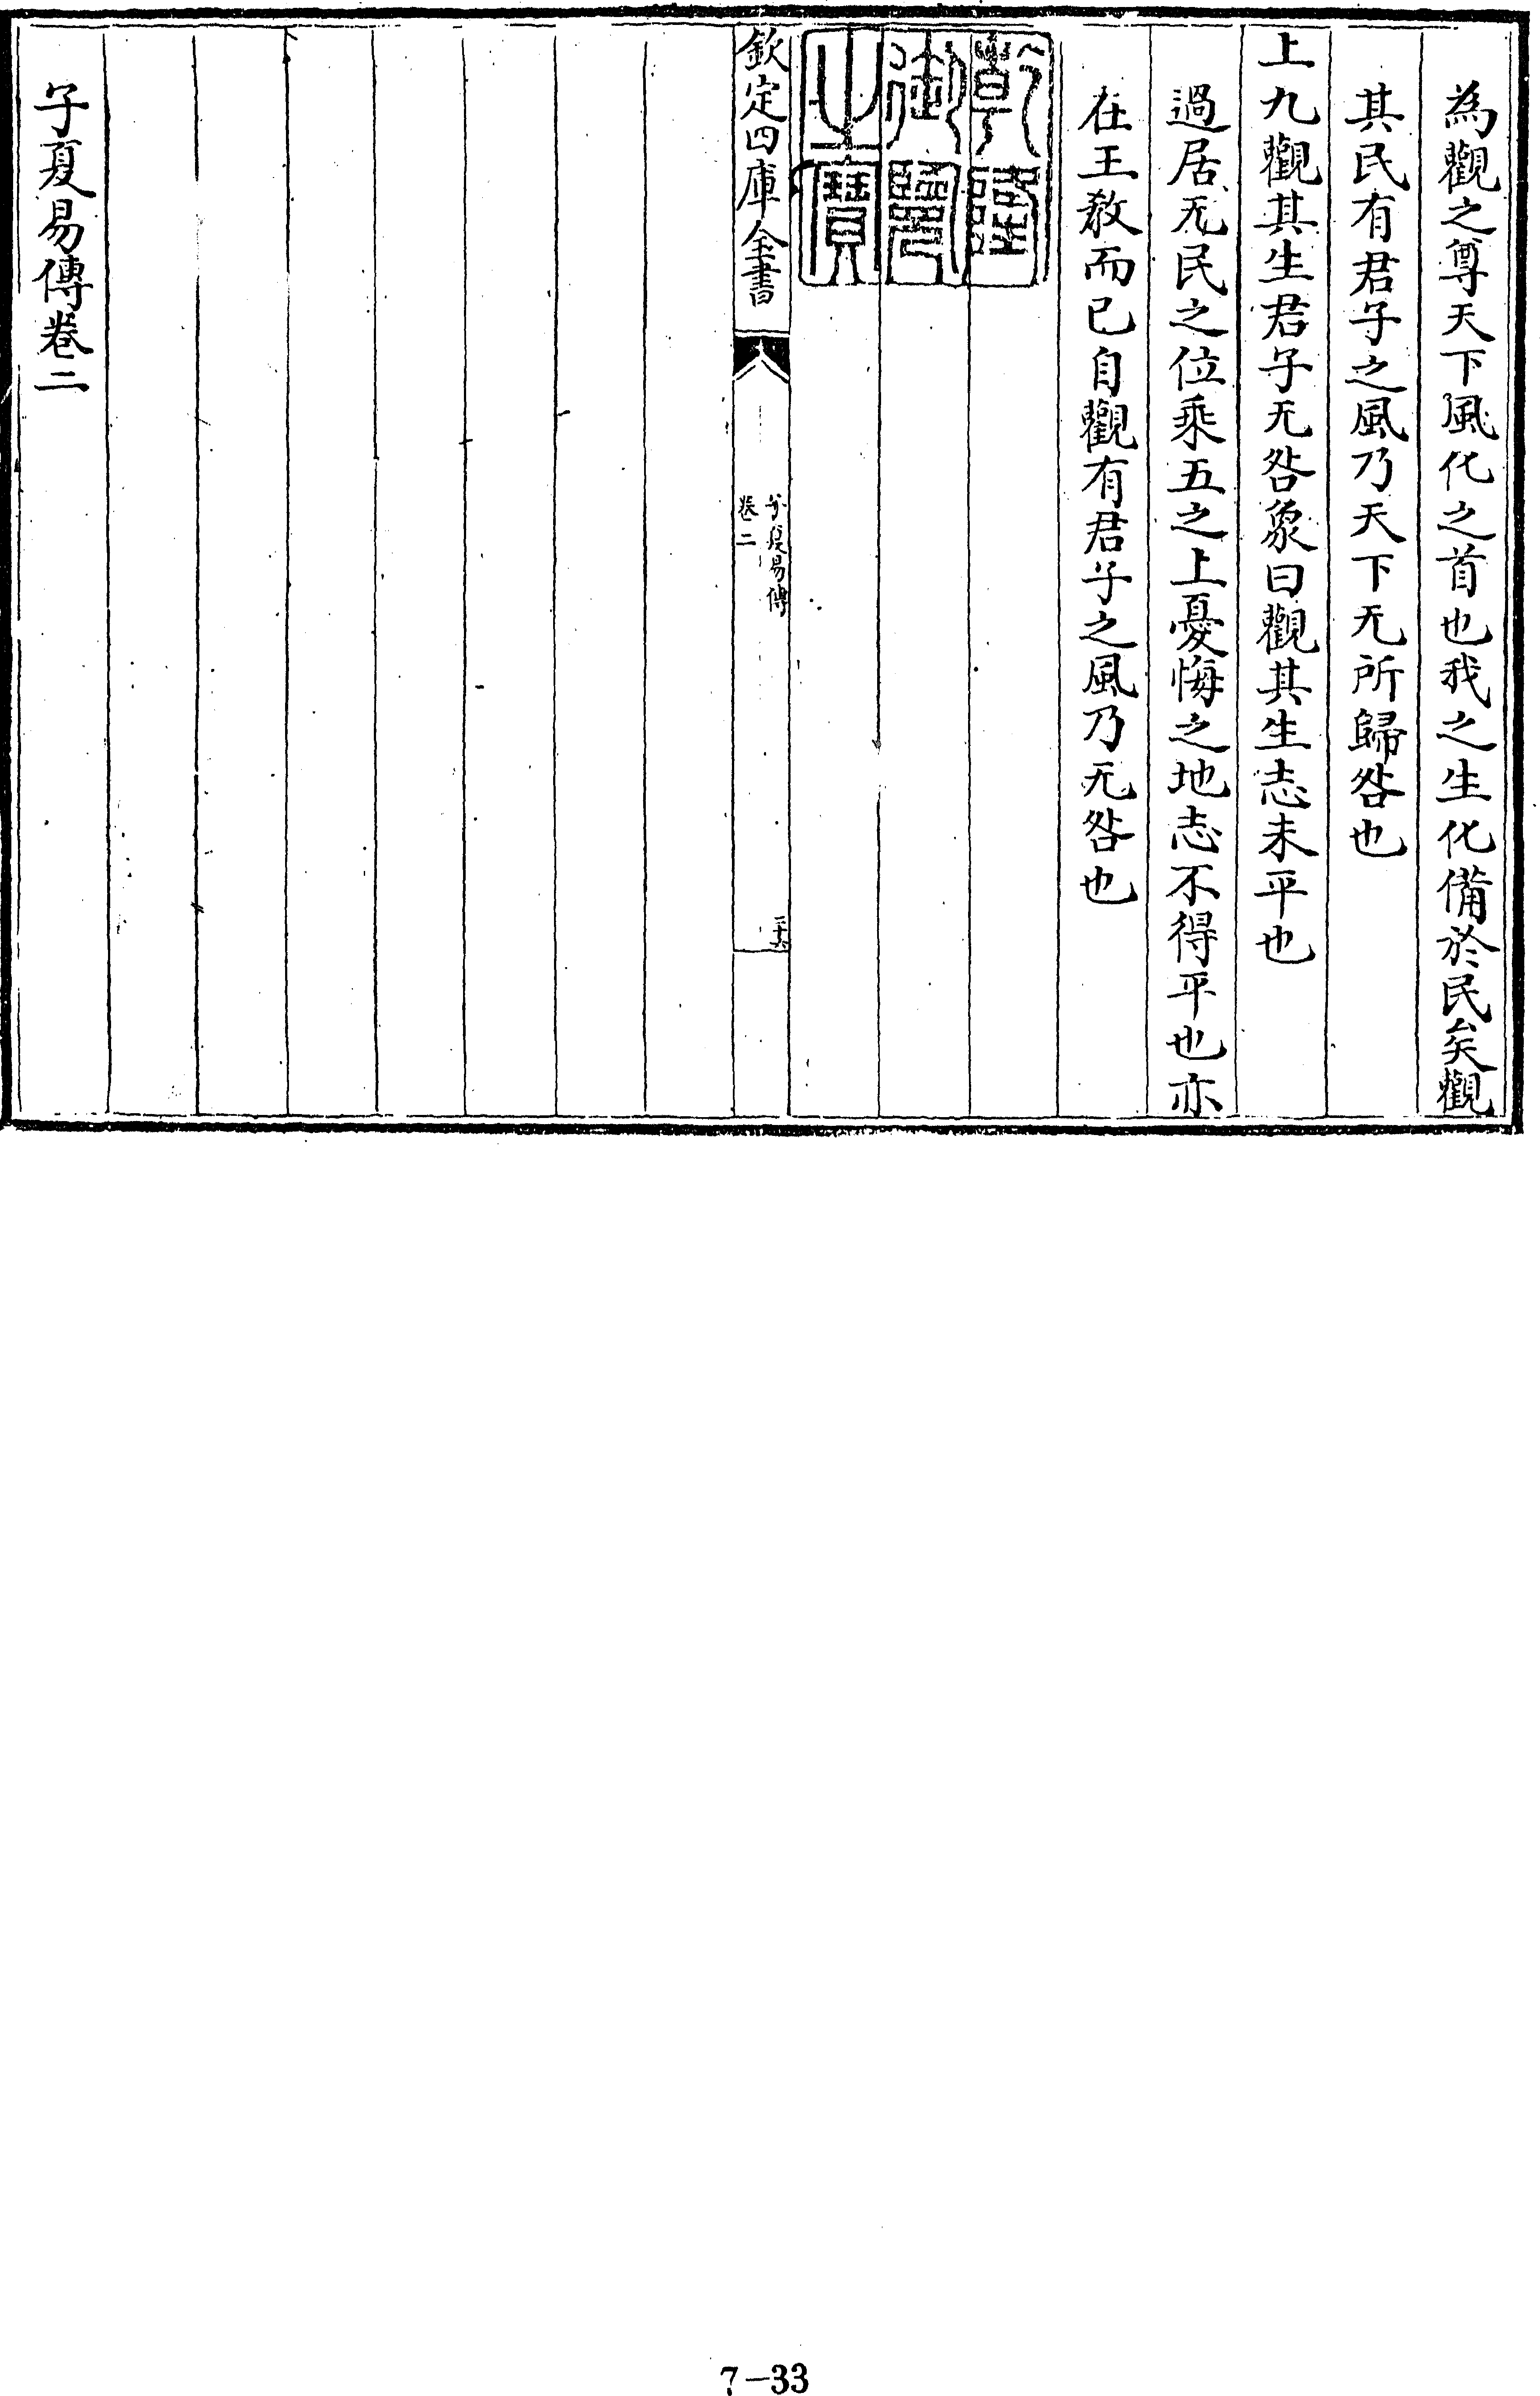 為觀之尊天下風化之首也我之生化備於民矣觀
其民有君子之風乃天下无所歸咎也
上九觀其生君子无咎象曰觀其生志未平也
過居无民之位乘五之上憂悔之地志不得平也亦
在王敎而已自觀有君子之風乃无咎也
乾隆
御覽
之寶
欽定四庫全書
子夏易傳
卷二
三十六
子夏易傳卷二
7-33